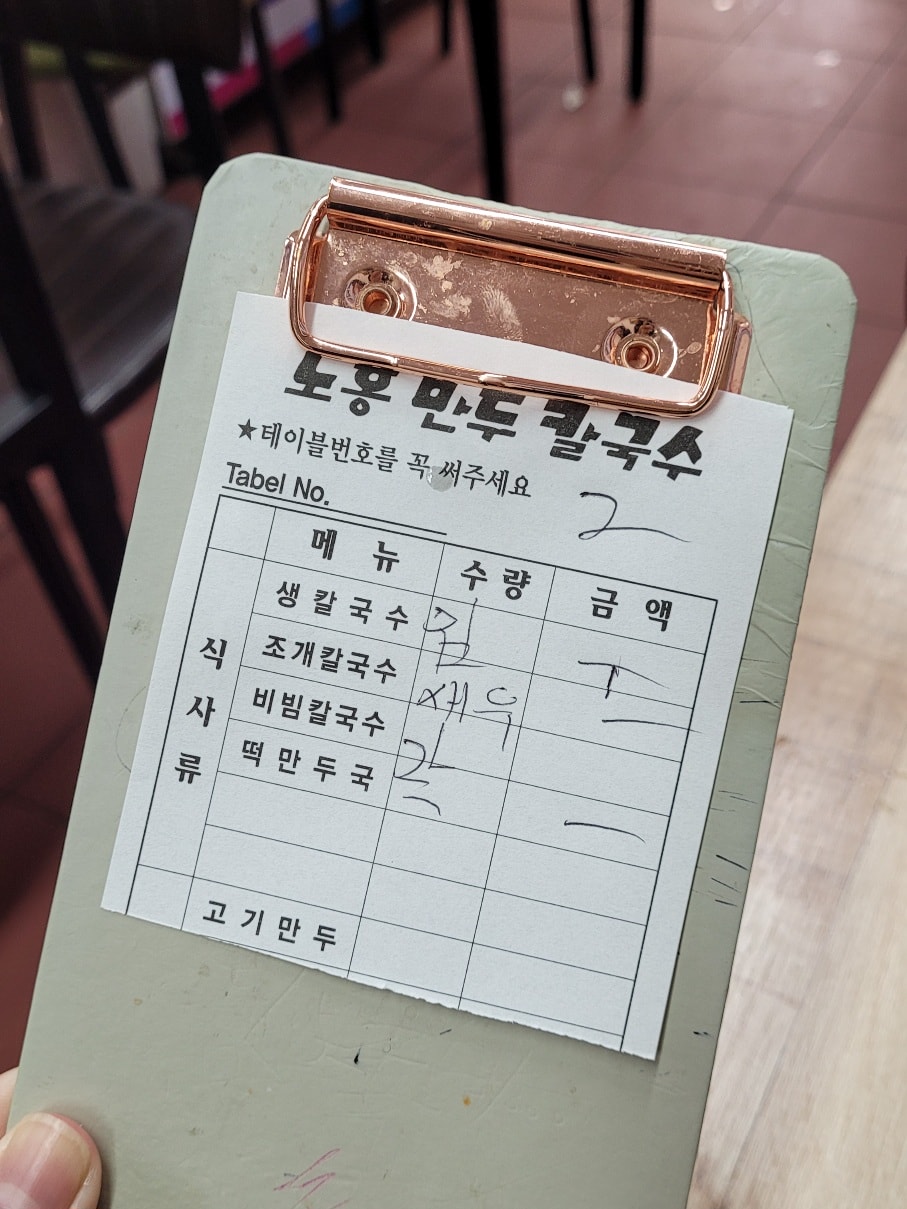 노홍 만두 칼국수
★테이블번호를 꼭 써주세요
Tabel No. 2
메 뉴 수 량 금 액
식사류
생칼국수
조개칼국수
비빔칼국수 새우
떡만두국 칼
고기만두